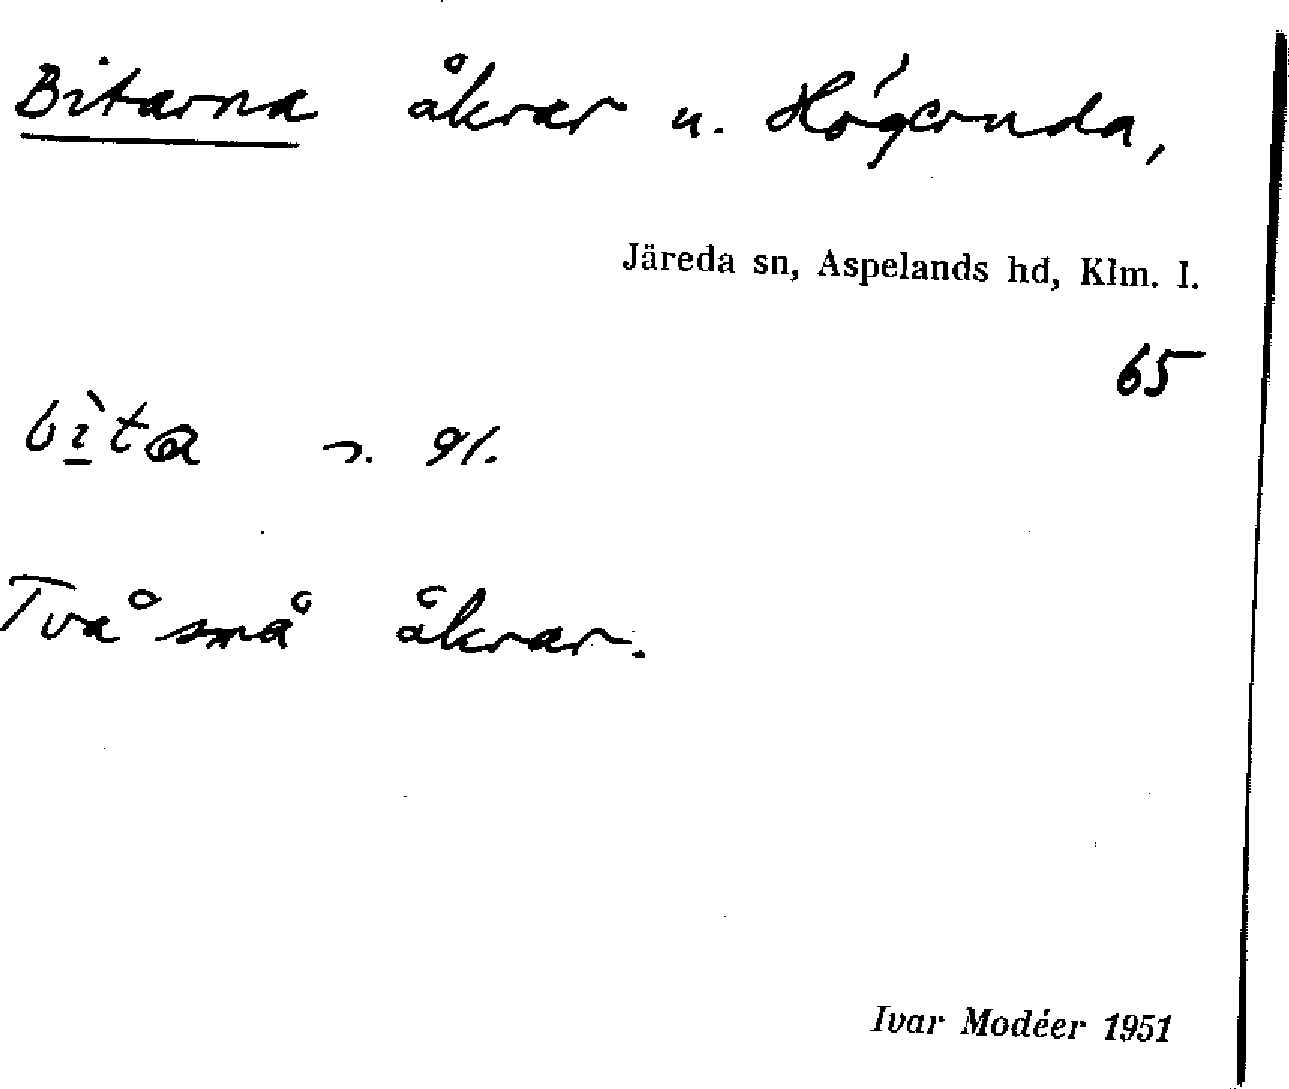 Bitarna åkrar u. Högerunda,
Järeda sn, Aspelands hd, Klm. l.
65
bì̱ta n. pl.
Två små åkrar.
Ivar Modéer 1951